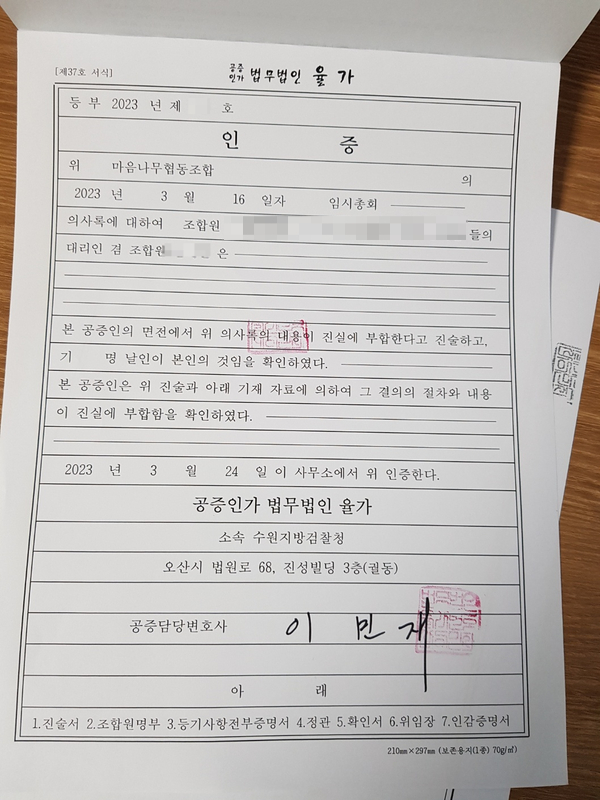 [제37호 서식]
공증인가 법무법인 율가
등부 2023 년 제 호
인 증
위 마음나무협동조합 의
2023 년 3 월 16 일자 임시총회
의사록에 대하여 조합원 들의
대리인 겸 조합원 은
본 공증인의 면전에서 위 의사록의 내용이 진실에 부합한다고 진술하고,
기 명 날인이 본인의 것임을 확인하였다.
본 공증인은 위 진술과 아래 기재 자료에 의하여 그 결의의 절차와 내용
이 진실에 부합함을 확인하였다.
2023 년 3 월 24 일 이 사무소에서 위 인증한다.
공증인가 법무법인 율가
소속 수원지방검찰청
오산시 법원로 68, 진성빌딩 3층(궐동)
공증담당변호사 이 민 재
아 래
1.진술서 2.조합원명부 3.등기사항전부증명서 4.정관 5.확인서 6.위임장 7.인감증명서
210㎜×297㎜ (보존용지(1종) 70g/㎡)